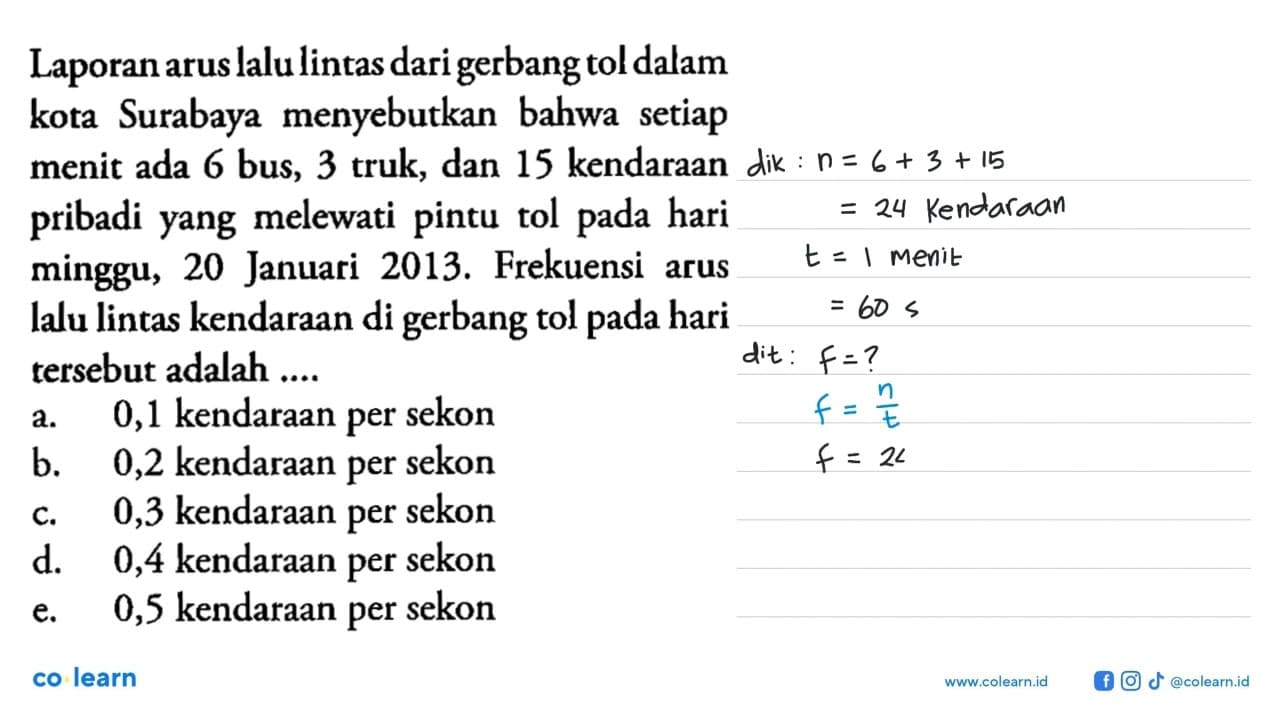 Laporan arus lalu lintas dari gerbang tol dalam
kota Surabaya menyebutkan bahwa setiap
menit ada 6 bus, 3 truk, dan 15 kendaraan
pribadi yang melewati pintu tol pada hari
minggu, 20 Januari 2013. Frekuensi arus
lalu lintas kendaraan di gerbang tol pada hari
tersebut adalah ....
a. 0,1 kendaraan per sekon
b. 0,2 kendaraan per sekon
c. 0,3 kendaraan per sekon
d. 0,4 kendaraan per sekon
e. 0,5 kendaraan per sekon
dik : n = 6 + 3 + 15
= 24 Kendaraan
t = 1 menit
= 60 s
dit : f = ?
f = n/t
f = 2
co learn
www.colearn.id
@colearn.id